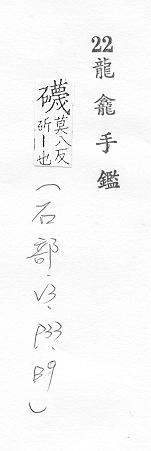 22龍龕手鑑
礣莫八反
斫丨也
(石部.V3.P33.B9)